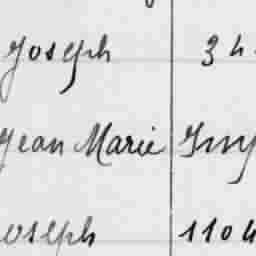 Joseph 34
Jean Marie
Joseph 1104